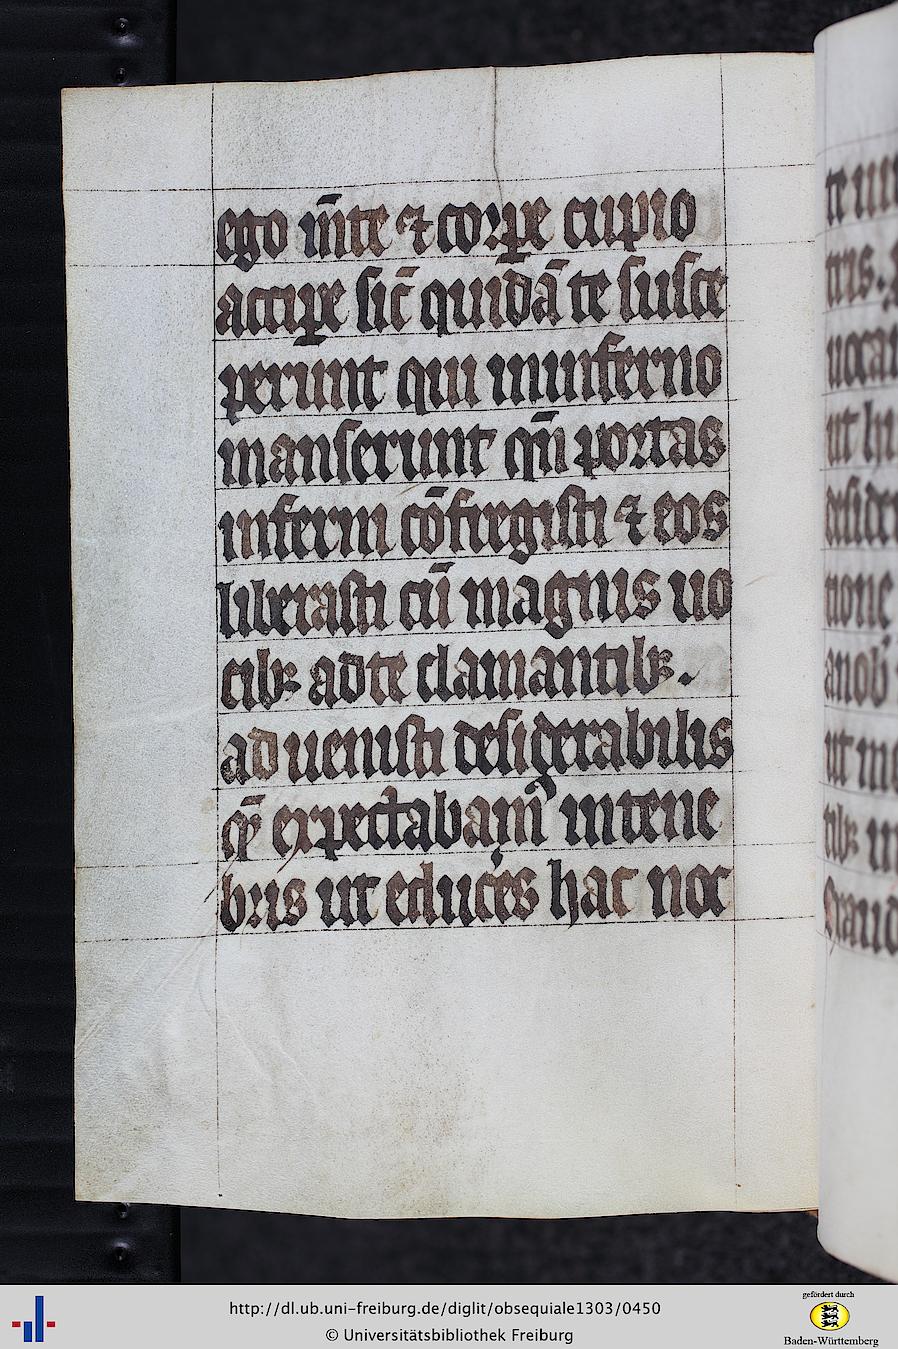 ego m̄te ⁊ corꝑe cupio
acciꝑe sic̄ quidā te susce
perunt qui ininferno
manserunt qn̄ portas
inferni cōfregisti ⁊ eos
liberasti cū magnis uo
cibꝫ adte clamantibꝫ.
ad uenisti desiderabilis
qē expectabam̄ intene
bris ut educēs hac noc
http://dl.ub.uni-freiburg.de/diglit/obsequiale1303/0450
© Universitätsbibliothek Freiburg
gefördert durch
Baden-Württemberg